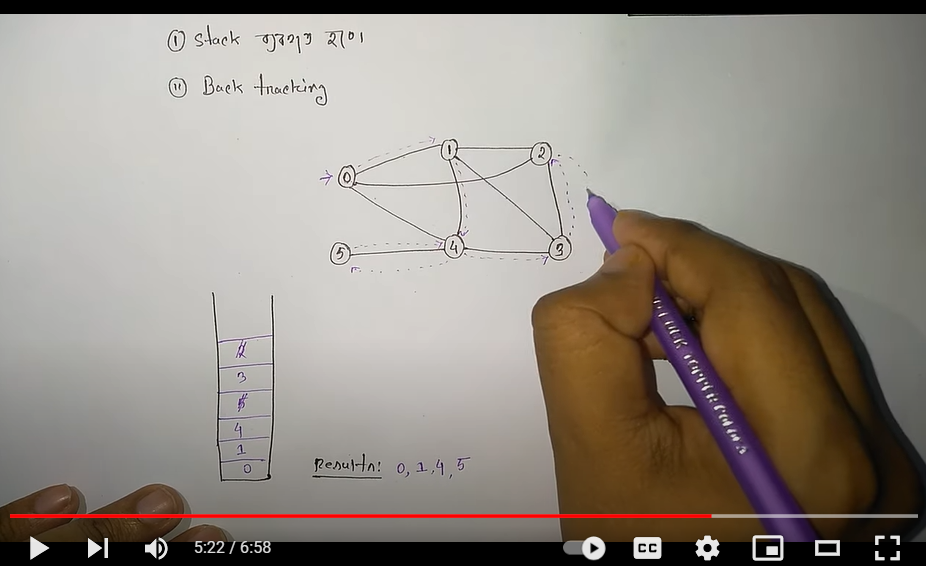 (i) Stack ব্যবহৃত হবে।
(ii) Back tracking
0 1 2
5 4 3
3
4
1
0
Results: 0, 1, 4, 5
5:22 / 6:58
CC